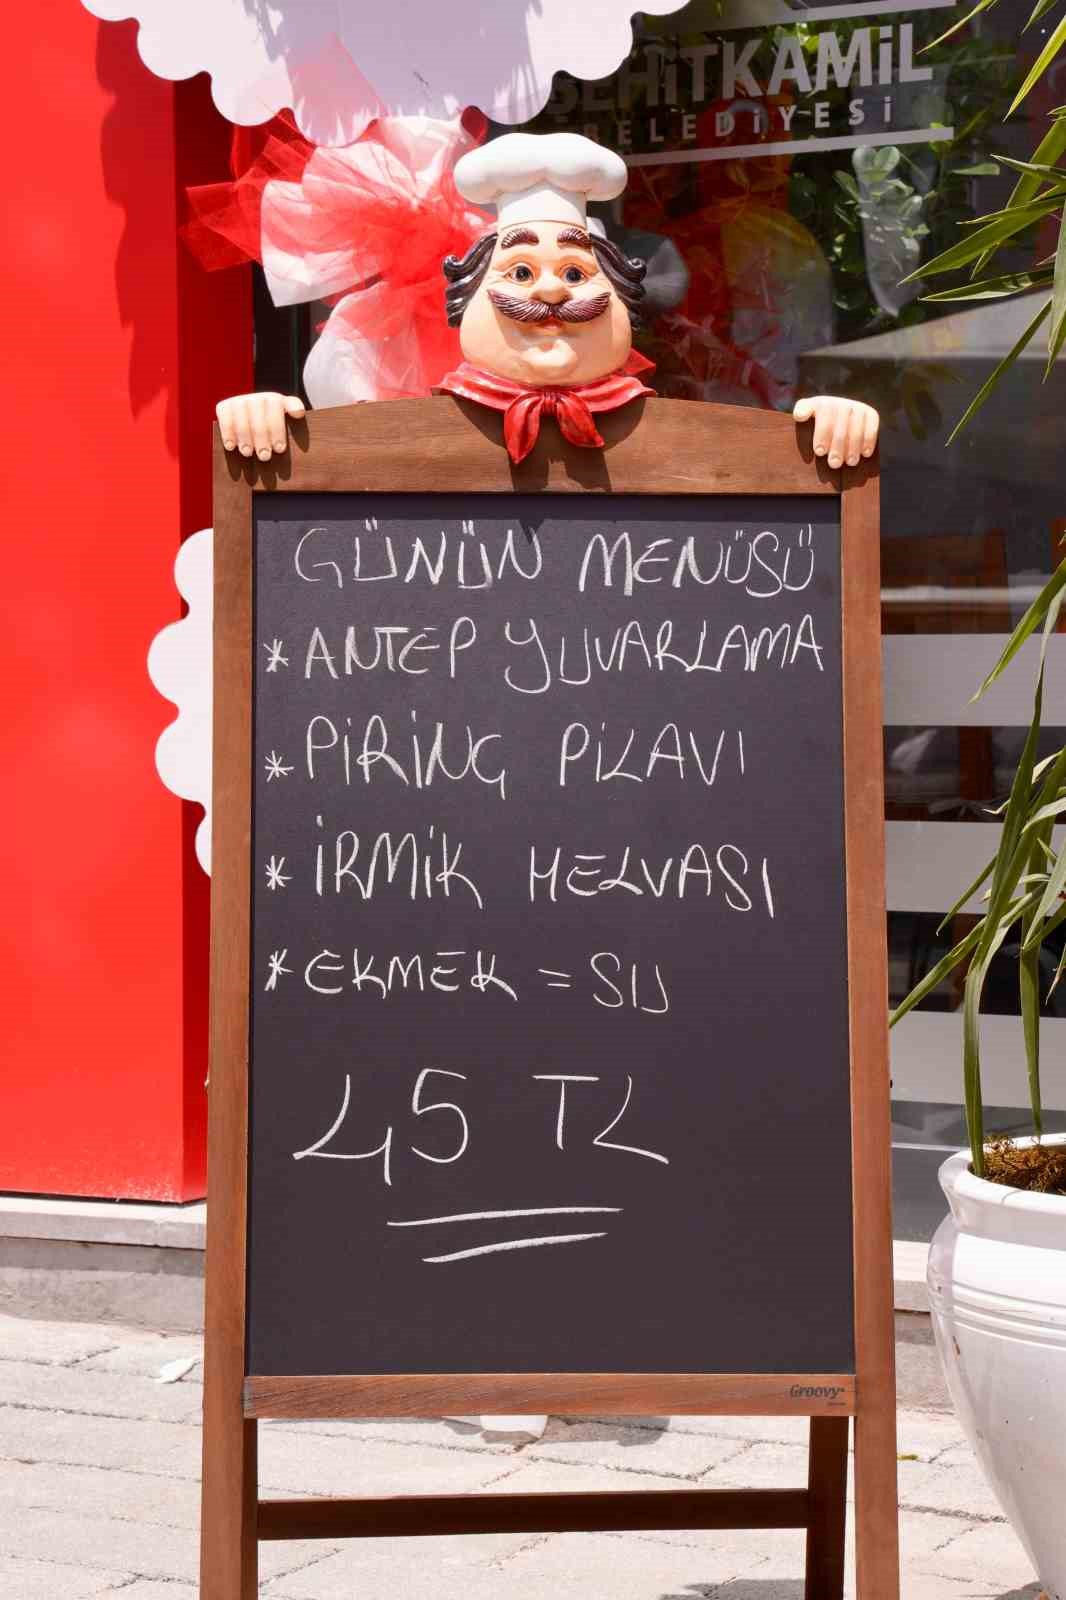 ŞEHİTKAMİL
BELEDİYESİ
GÜNÜN MENÜSÜ
* ANTEP YUVARLAMA
* PİRİNÇ PİLAVI
* İRMİK HELVASI
* EKMEK = SU
45 TL
Groovy